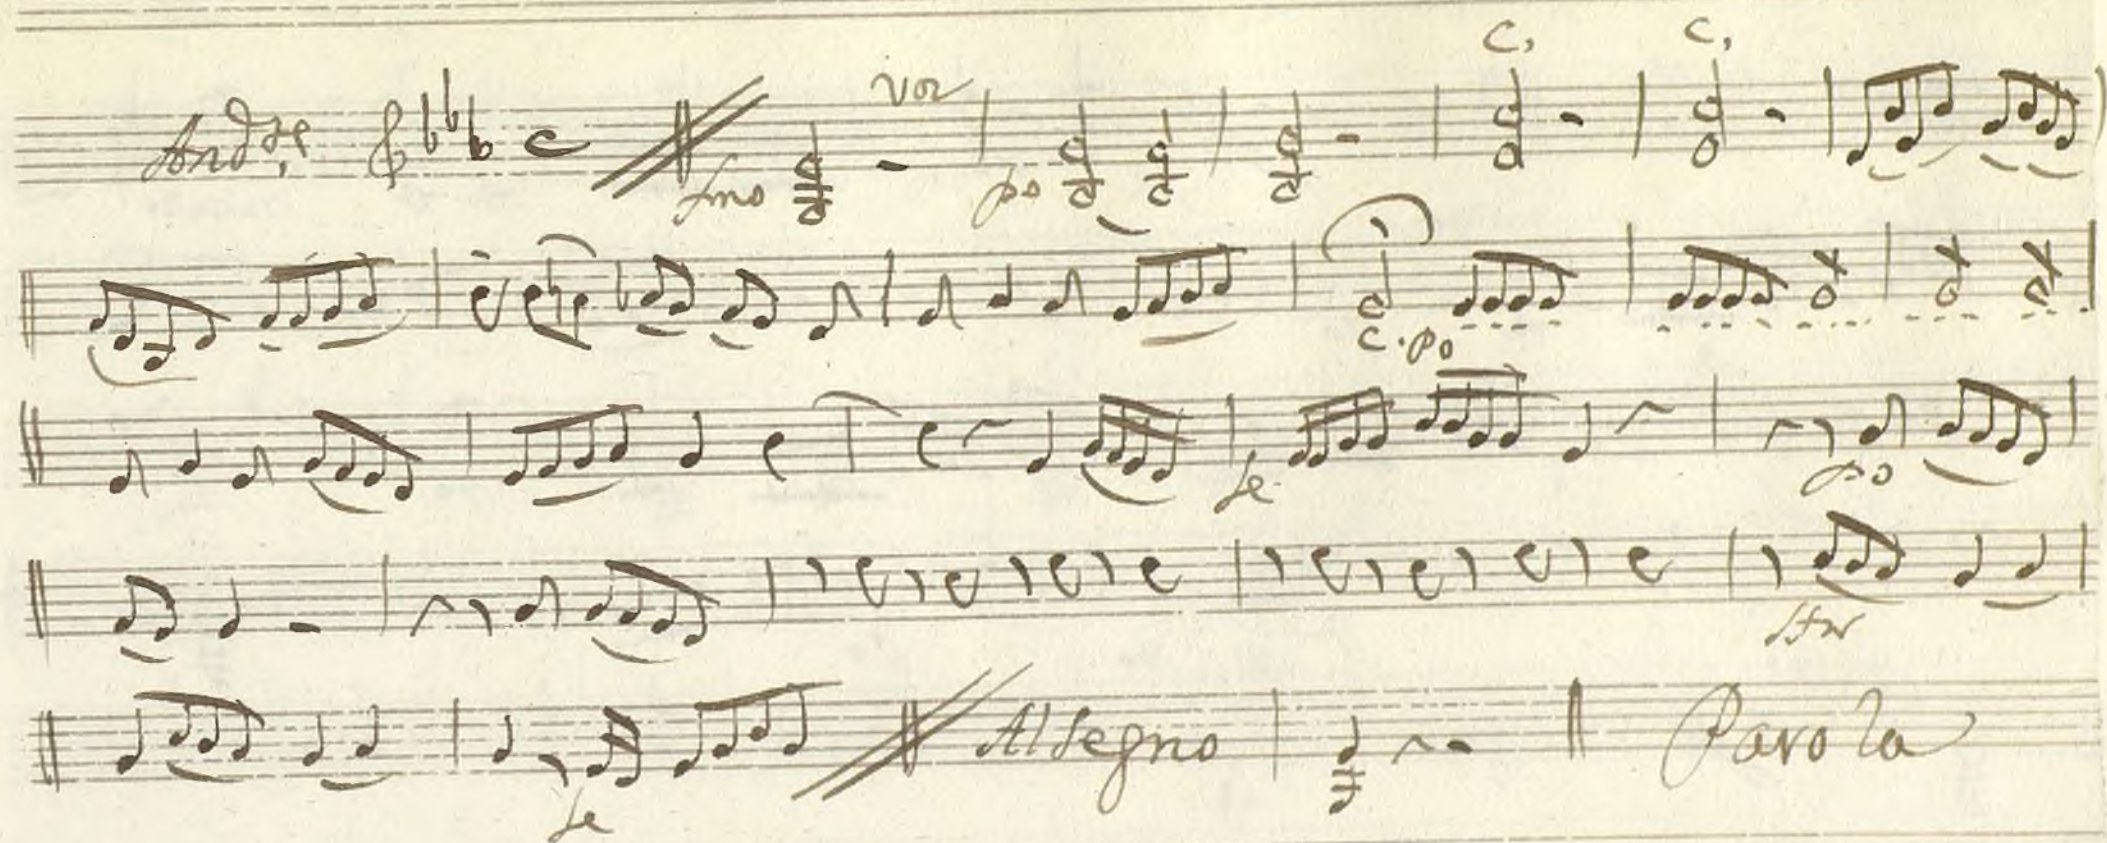 C, C,
And.te C fmo Vor po
C. po
fe po
ste
fe Al Segno Parola